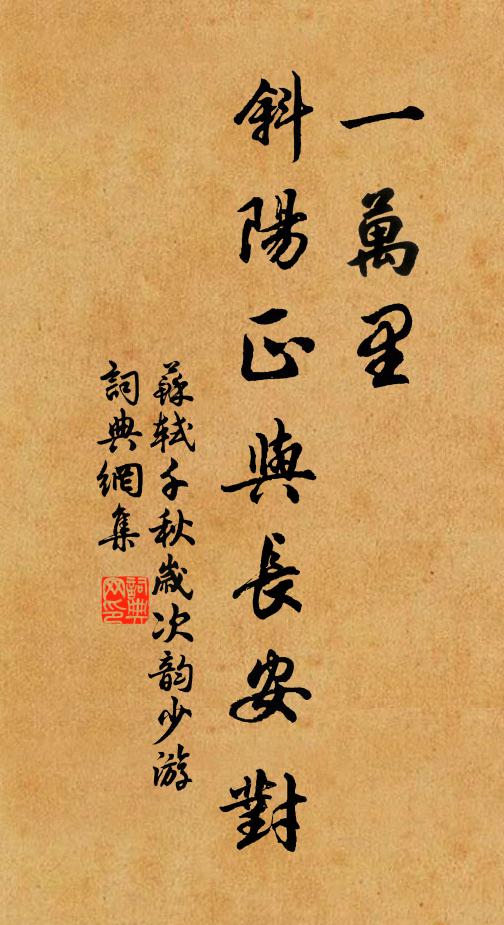 一萬里
斜陽正與長安對
蘇軾千秋歲次韵少游
詞典網集
詞典網印